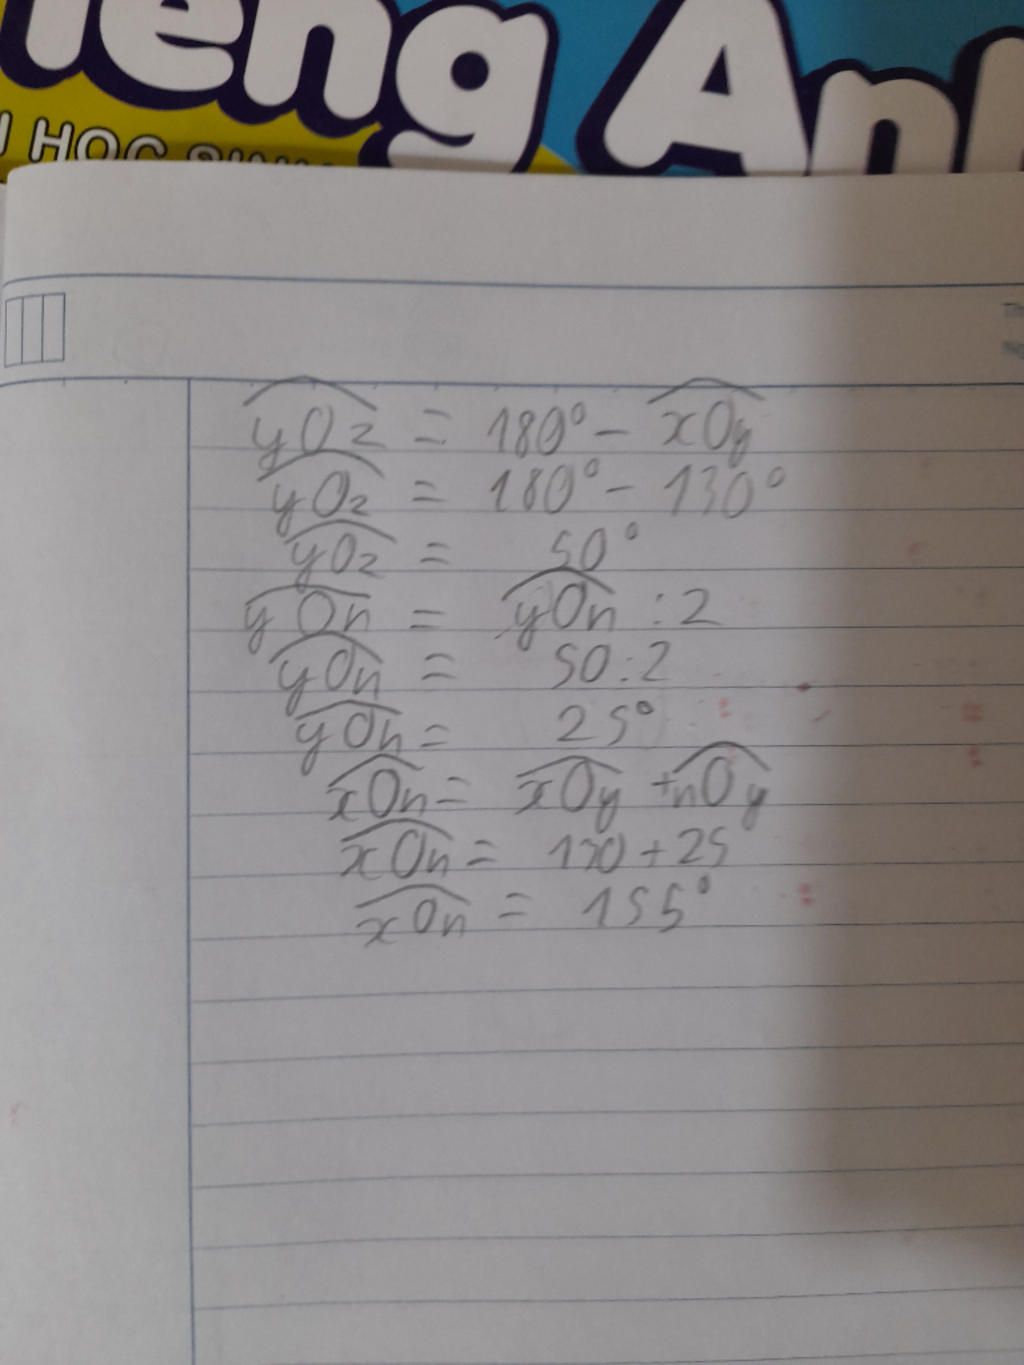 iếng Anh
HỌC SINH
yOz = 180° - xOy
yOz = 180° - 130°
yOz = 50°
yOn = yOn : 2
yOn = 50 : 2
yOn = 25°
xOn = xOy + nOy
xOn = 130 + 25
xOn = 155°